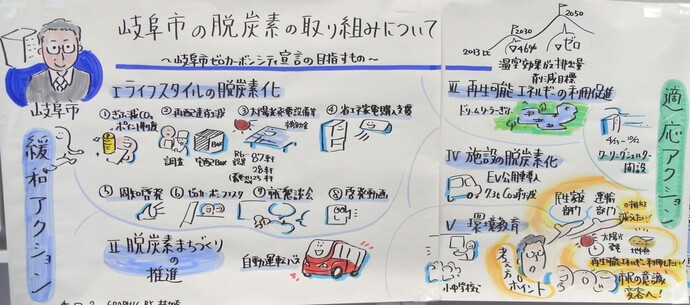 岐阜市の脱炭素の取り組みについて
〜岐阜市ゼロカーボンシティ宣言の目指すもの〜
岐阜市
緩和アクション
I ライフスタイルの脱炭素化
① ぎふ減CO₂ポイント制度
② 再配達削減
調査
宅配Box
③ 太陽光発電設備等
補助金
87件
28件
④ 省エネ家電購入支援
⑤ 周知啓発
⑥ ゼロカーボンフェスタ
⑦ 市政懇談会
⑧ 啓発動画
II 脱炭素まちづくり
の
推進
自動運転バス
2013比
2030
▽46%
2050
▽ゼロ
温室効果ガス排出量
削減目標
III 再生可能エネルギーの利用促進
適応アクション
クーリングシェルター
開設
IV 施設の脱炭素化
EV公用車導入
V 環境教育
小中学校で
考え方
ポイント
民生家庭
部門
運輸
部門
減らしたい!
太陽光
発電
地熱
再生可能エネルギーを利用したい!
市民の意識
変容へ!
GRAPHIC BY